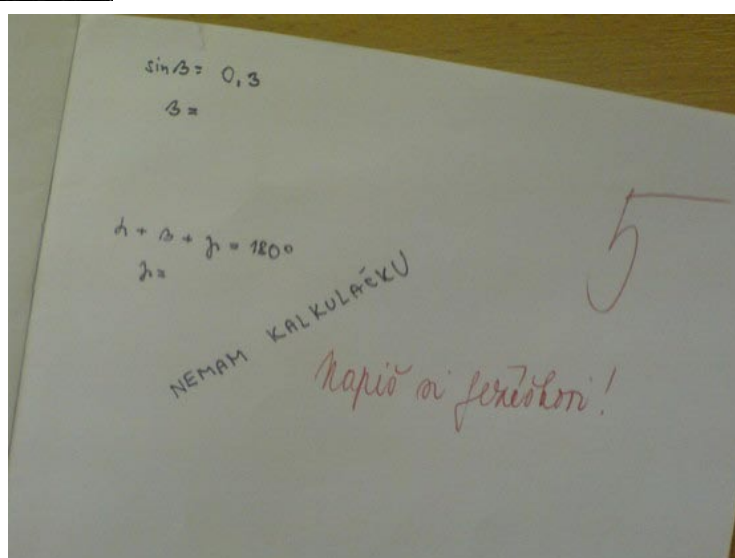 sinβ= 0,3
β=
α + β + γ = 180°
γ=
NEMAM KALKULAČKU
5
Napiš si Ježíškovi!